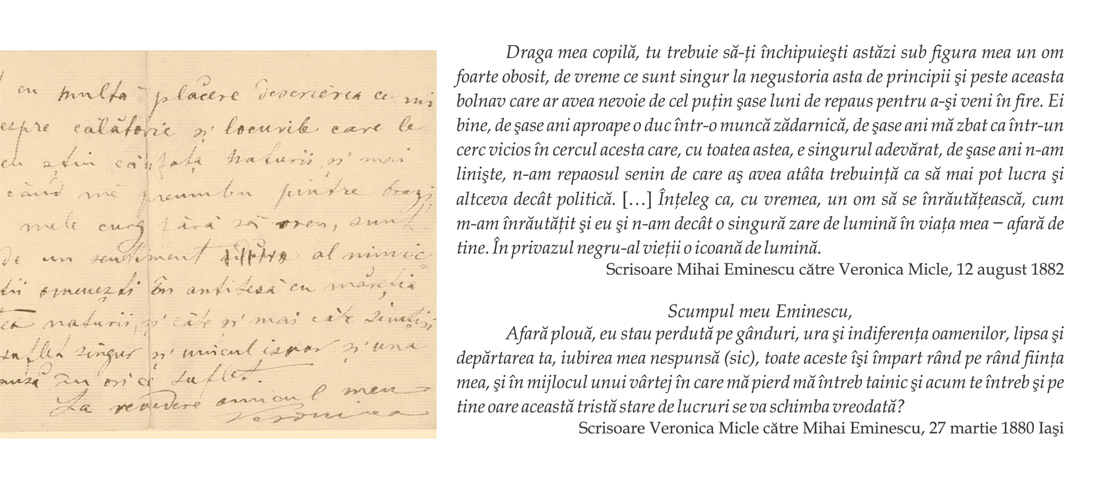 cu multă plăcere descrierea ce mi
espre călătorie și locurile care le
știu căci fața naturii și mai
când mĕ preumblu printre brazi
mele curg fără să vren, sunt
de un sentiment al nimic
omenești în antitesă cu măreția
naturii, și căte și mai căte simțiri
suflet singur și unicul isvor și una
în ori ce suflet.
La revedere amicul meu
Veronica
Draga mea copilă, tu trebuie să-ți închipuiești astăzi sub figura mea un om
foarte obosit, de vreme ce sunt singur la negustoria asta de principii și peste aceasta
bolnav care ar avea nevoie de cel puțin șase luni de repaus pentru a-și veni în fire. Ei
bine, de șase ani aproape o duc într-o muncă zădarnică, de șase ani mă zbat ca într-un
cerc vicios în cercul acesta care, cu toatea astea, e singurul adevărat, de șase ani n-am
liniște, n-am repaosul senin de care aș avea atâta trebuință ca să mai pot lucra și
altceva decât politică. […] Înțeleg ca, cu vremea, un om să se înrăutățească, cum
m-am înrăutățit și eu și n-am decât o singură zare de lumină în viața mea – afară de
tine. În privazul negru-al vieții o icoană de lumină.
Scrisoare Mihai Eminescu către Veronica Micle, 12 august 1882
Scumpul meu Eminescu,
Afară plouă, eu stau perdută pe gânduri, ura și indiferența oamenilor, lipsa și
depărtarea ta, iubirea mea nespunsă (sic), toate aceste își împart rând pe rând ființa
mea, și în mijlocul unui vârtej în care mă pierd mă întreb tainic și acum te întreb și pe
tine oare această tristă stare de lucruri se va schimba vreodată?
Scrisoare Veronica Micle către Mihai Eminescu, 27 martie 1880 Iași